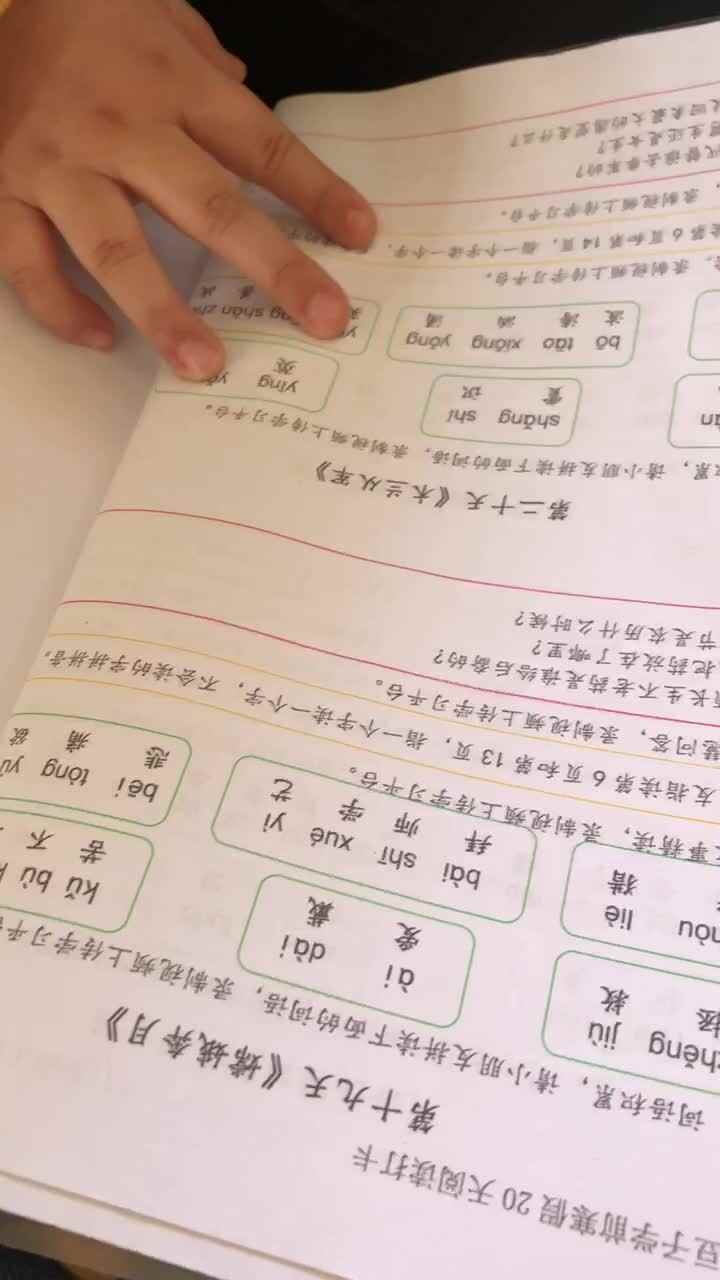 豆子学前寒假 20 天阅读打卡
第十九天《嫦娥奔月》
词语积累，请小朋友拼读下面的词语，录制视频上传学习平台
jiù ài dài kǔ bù
拯 救 爱 戴 苦 不
liè bài shī xué yì bēi tòng yù
猎 拜 师 学 艺 悲 痛 欲
事精读，录制视频上传学习平台。
友指读第 6 页和第 13 页，指一个字读一个字，不会读的字拼拼音。
慧问答，录制视频上传学习平台。
长生不老药是谁给后羿的？
把药放在了哪里？
节是农历什么时候？
第二十天《木兰从军》
累，请小朋友拼读下面的词语，录制视频上传学习平台。
shǎng shí yīng
赏 识 英
bō tāo xiōng yǒng
波 涛 汹 涌
，录制视频上传学习平台。
第 6 页和第 14 页，指一个字读一个字，
，录制视频上传学习平台。
代替谁去参军的？
生还是女生？
最大的愿望是什么？